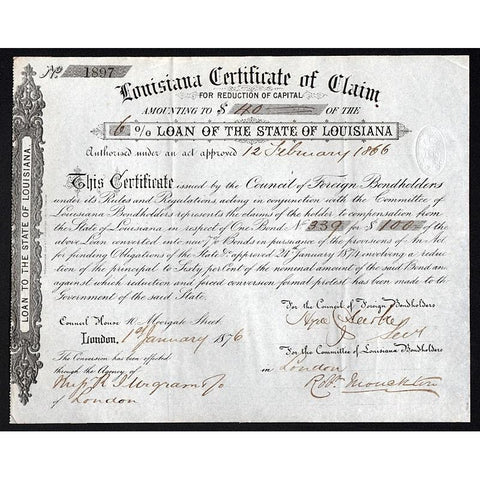 No 1897
Louisiana Certificate of Claim
FOR REDUCTION OF CAPITAL
AMOUNTING TO $ 40 OF THE
6 % LOAN OF THE STATE OF LOUISIANA
Authorised under an act approved 12 February 1866
This Certificate issued by the Council of Foreign Bondholders
under its Rules and Regulations acting in conjunction with the Committee of
Louisiana Bondholders represents the claims of the holder to compensation from
the State of Louisiana in respect of One Bond No 339 for $ 100 of the
above Loan converted into new 7% Bonds in pursuance of the provisions of An Act
for funding Obligations of the State &c approved 24th January 1874 involving a reduc
tion of the principal to Sixty per Cent of the nominal amount of the said Bond an
against which reduction and forced conversion formal protest has been made to the
Government of the said State.
For the Council of Foreign Bondholders
Hyde Clarke
Secy
Council House 10 Moorgate Street
London, 1st January 1876
For the Committee of Louisiana Bondholders
in London
Robt Monckton
The Conversion has been effected
through the Agency of
of London
LOAN TO THE STATE OF LOUISIANA.